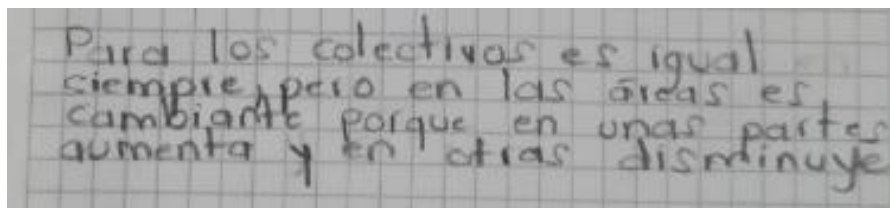 Para los colectivos es igual
siempre, pero en las áreas es
cambiante porque en unas partes
aumenta y en otras disminuye